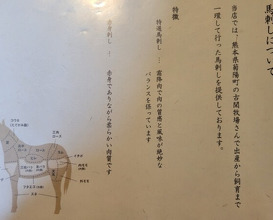 馬刺しについて
当店では、熊本県菊陽町の古閑牧場さんで出産から飼育まで
一環して行った馬刺しを提供しております。
特徴
特選馬刺し … 霜降肉で肉の質感と風味が絶妙な
バランスを保っています
赤身刺し … 赤身でありながら柔らかい肉質です